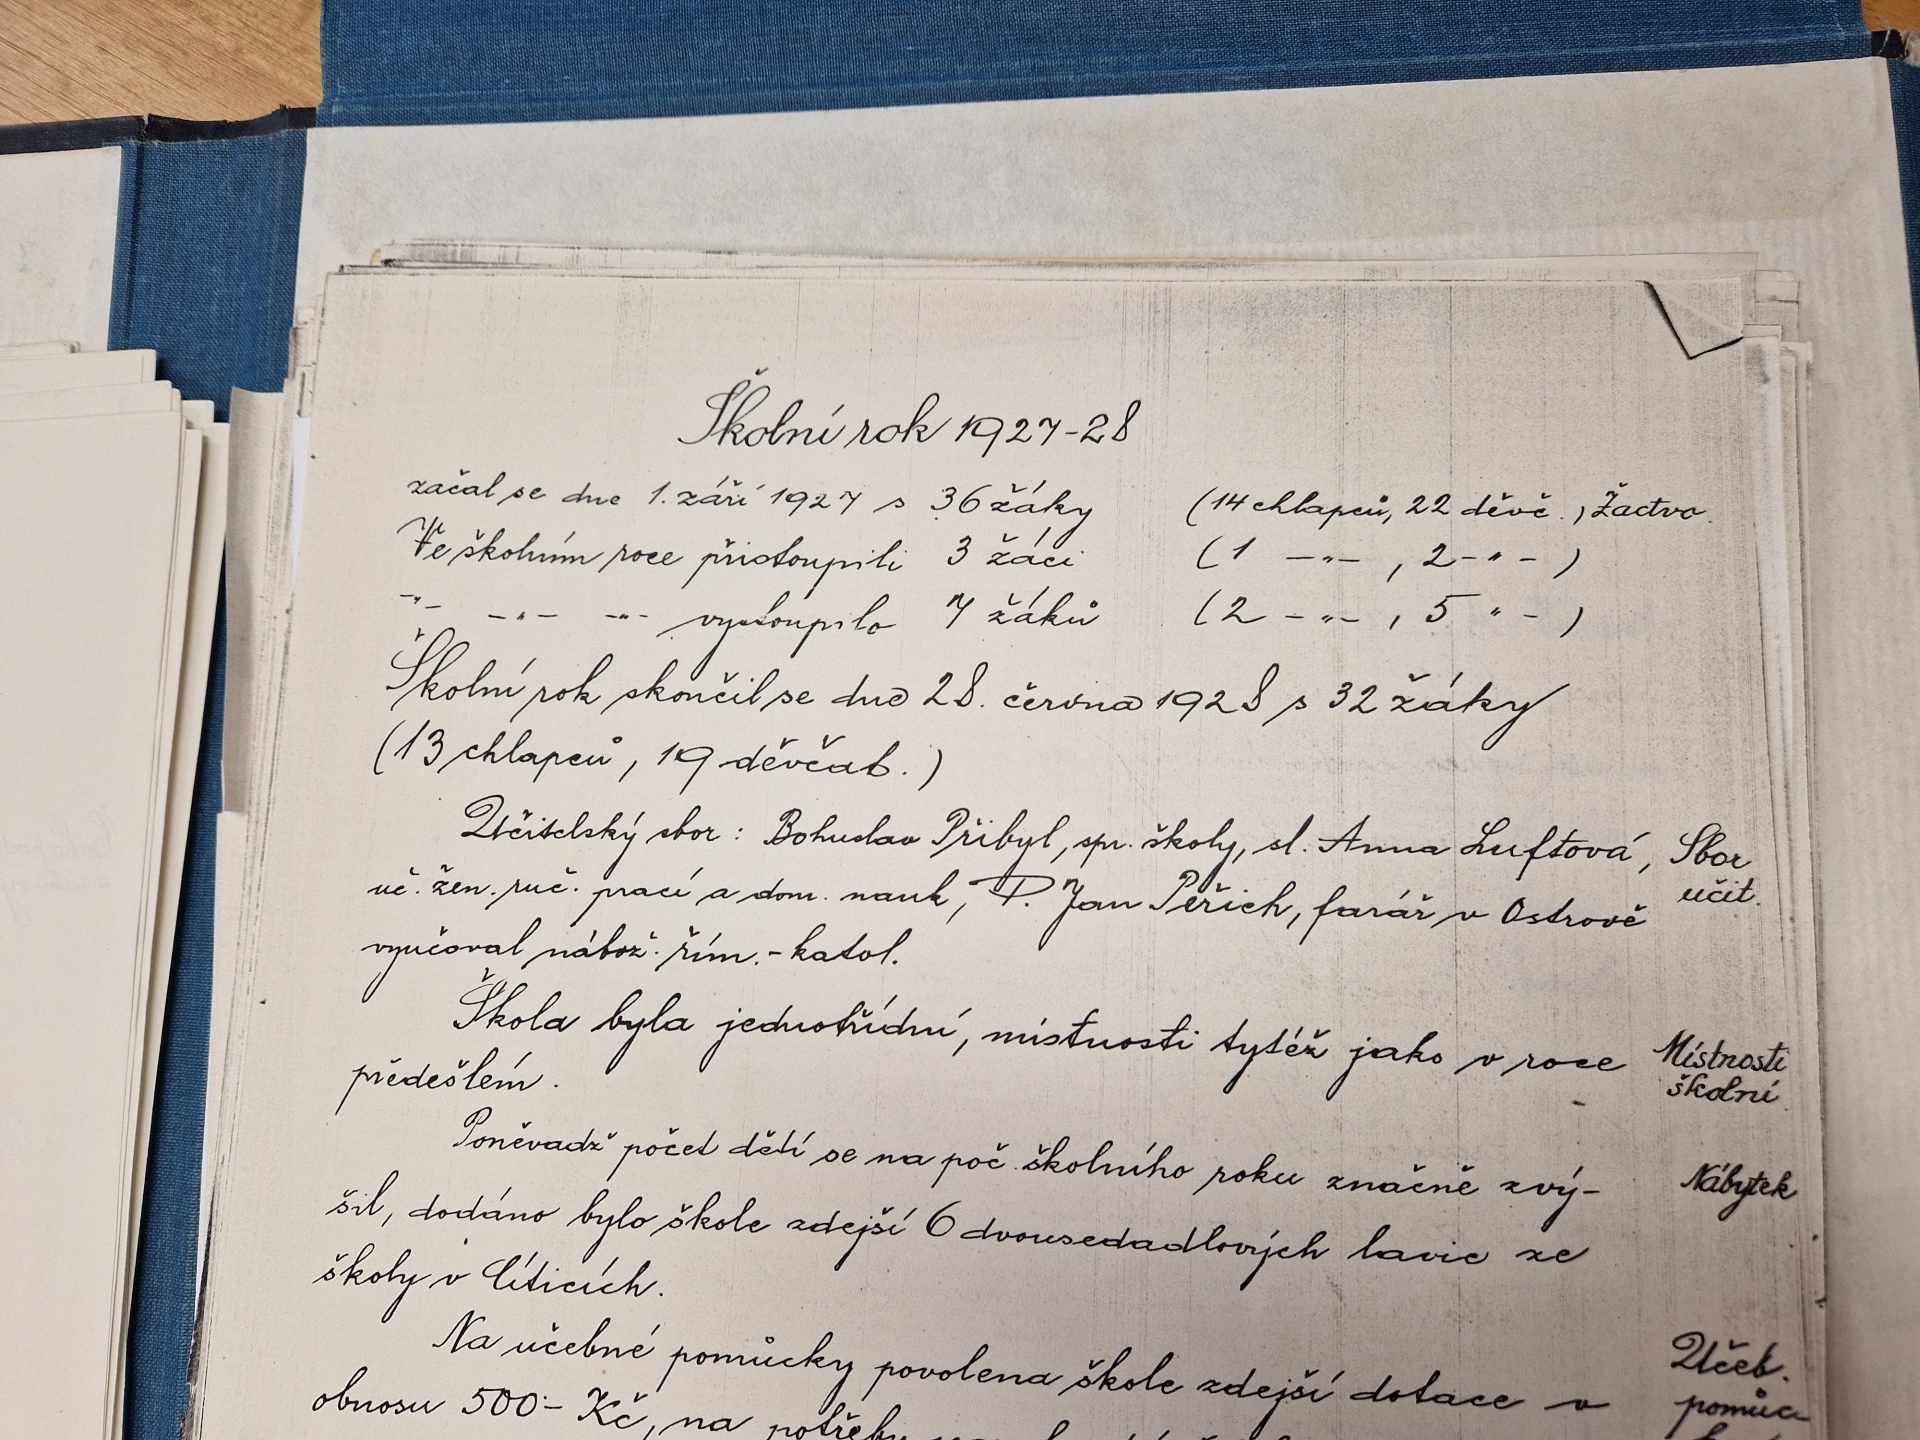 Školní rok 1927-28
začal se dne 1. září 1927 s 36 žáky (14 chlapců, 22 děvč.) Žactvo.
Ve školním roce přistoupili 3 žáci (1 -„- , 2 -„- )
-„- -„- -„- vystoupilo 7 žáků (2 -„- , 5 „ - )
Školní rok skončil se dne 28. června 1928 s 32 žáky
(13 chlapců, 19 děvčat.)
Učitelský sbor: Bohuslav Přibyl, spr. školy, sl. Anna Luftová, Sbor
uč. žen. ruč. prací a dom. nauk, P. Jan Peřich, farář v Ostrově učit.
vyučoval nábož. řím.-katol.
Škola byla jednotřídní, místnosti tytéž jako v roce Místnosti
předešlém. školní
Poněvadž počet dětí se na poč. školního roku značně zvý- Nábytek
šil, dodáno bylo škole zdejší 6 dvousedadlových lavic ze
školy v Cíticích.
Na učebné pomůcky povolena škole zdejší dotace v Učeb.
obnosu 500·- Kč, na potřeby pomůc